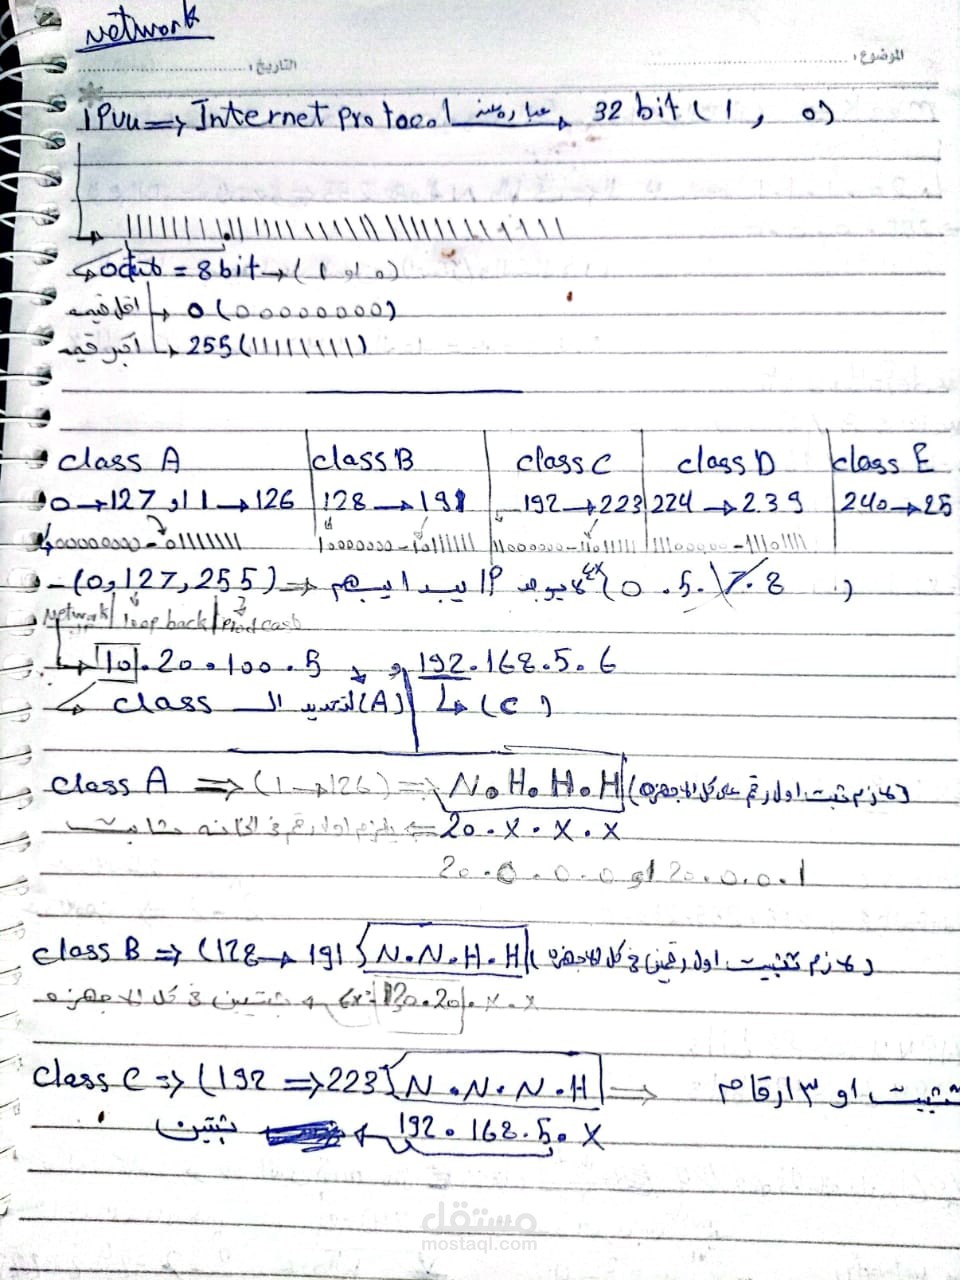 Network
الموضوع: التاريخ:
IPvu => Internet Protocol عباره عن 32 bit (1, 0)
= 8bit → (0 او 1)
اقل قيمه → 0 (00000000)
اكبر قيمه → 255 (11111111)
class A class B class C class D class E
0→127 او 1→126 128→191 192→223 224→239 240→25
00000000-01111111 10000000-10111111 11000000-11011111
- (0, 127, 255) => لا يوجد IP يبدا بيهم ex (0.5.7.8)
Network | loop back |
10.20.100.5 و 192.168.5.6
لتحديد الـ class (A) (C)
class A => (1→126) => N.H.H.H (لازم تثبت اول رقم على كل الاجهزه)
20.X.X.X <= يلزم اول رقم في الخانه
20.0.0.0 او 20.0.0.1
class B => (128→191) N.N.H.H (لازم تثبيت اول رقمين في كل الاجهزه)
ex: 120.20.X.X → في كل الاجهزه
class C => (192 => 223) N.N.N.H => تثبيت او ٣ ارقام
192.168.5.X →
مستقل
mostaql.com